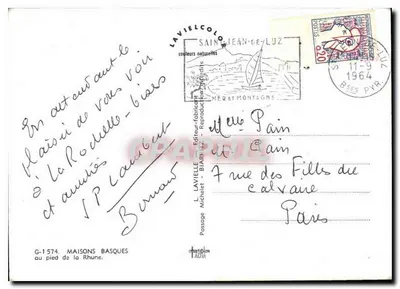 En attendant le
plaisir de vous voir
à La Rochelle - bises
et amitiés
JP Lambert
Bernard
G-1574. MAISONS BASQUES
au pied de la Rhune.
LAVIELCOLOR
couleurs naturelles
SAINT-JEAN-DE-LUZ
MER ET MONTAGNE
0,20
11-9
1964
Bses PYR.
Passage Michelet - BIARRITZ - Reproduction interdite
Mme Pain
7 rue des Filles du
Calvaire
Paris